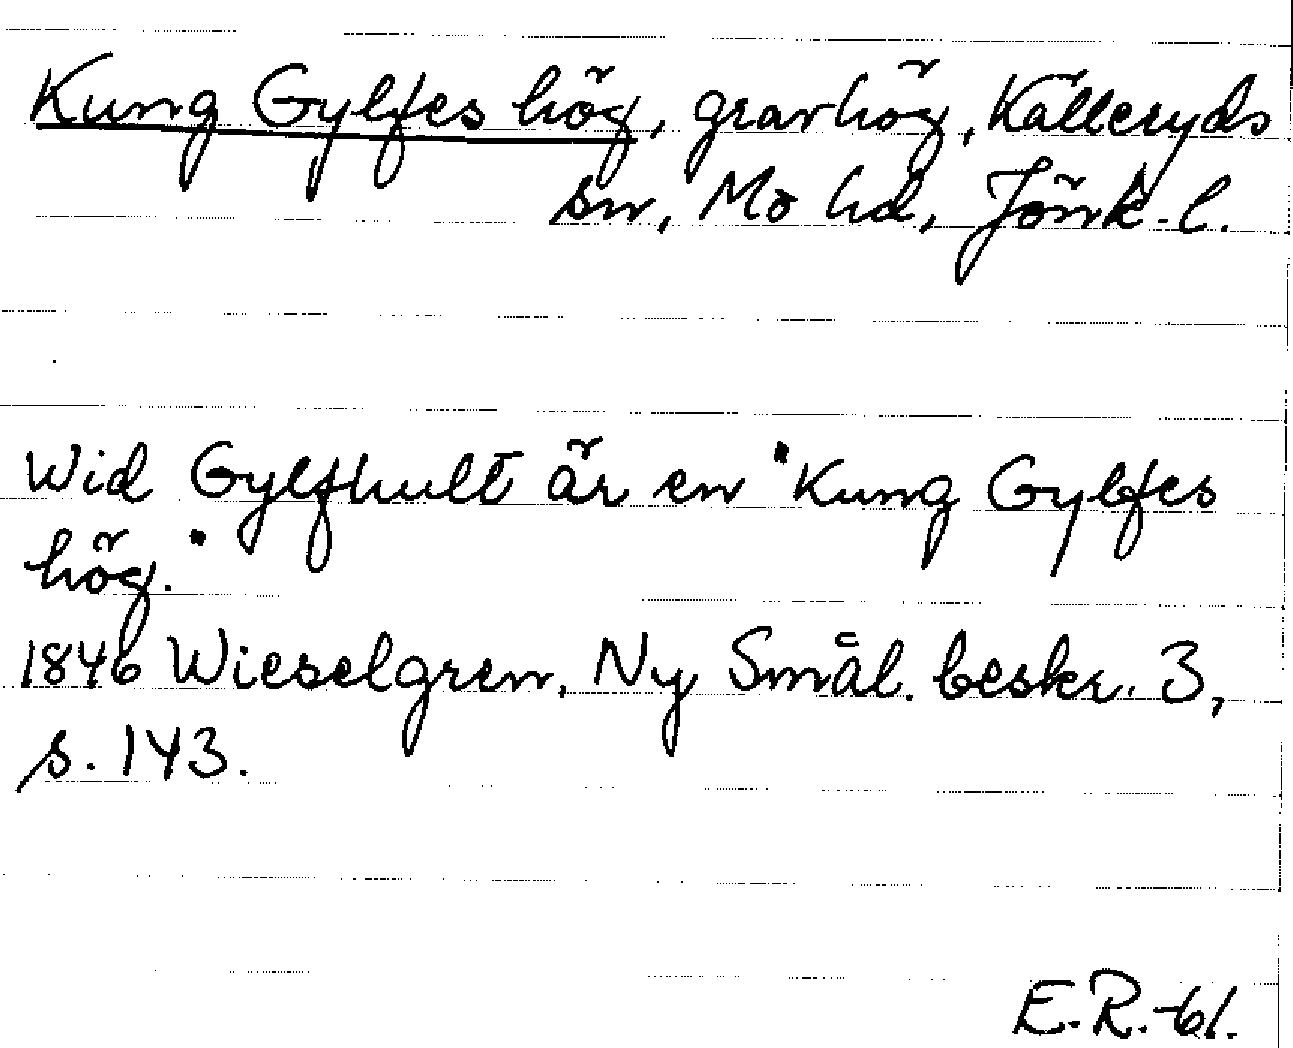 Kung Gylfes hög, gravhög, Källeryds
sn, Mo hd, Jönk. l.
Wid Gylfhult är en "Kung Gylfes
hög."
1846 Wieselgren, Ny Smål. beskr. 3,
s. 143.
E.R.-61.